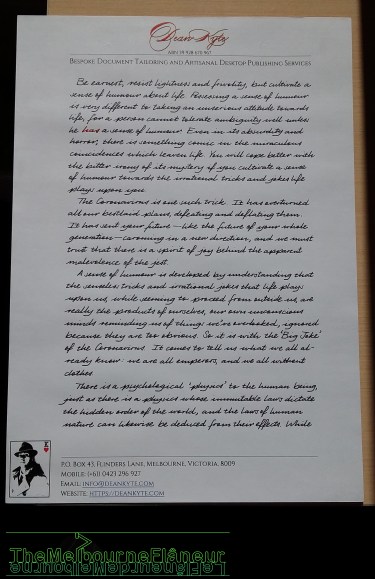 Dean Kyte
ABN 39 928 670 957
Bespoke Document Tailoring and Artisanal Desktop Publishing Services
Be earnest, resist lightness and frivolity, but cultivate a
sense of humour about life. Possessing a sense of humour
is very different to taking an unserious attitude towards
life, for a person cannot tolerate ambiguity well unless
he has a sense of humour. Even in its absurdity and
horror, there is something comic in the miraculous
coincidences which leaven life. You will cope better with
the bitter irony of its mystery if you cultivate a sense
of humour towards the irrational tricks and jokes life
plays upon you.
The Coronavirus is one such trick. It has overturned
all our bestlaid plans, defeating and deflating them.
It has sent your future—like the future of your whole
generation—careening in a new direction, and we must
trust that there is a spirit of joy behind the apparent
malevolence of the jest.
A sense of humour is developed by understanding that
the senseless tricks and irrational jokes that life plays
upon us, while seeming to proceed from outside us, are
really the products of ourselves, our own unconscious
minds reminding us of things we've overlooked, ignored
because they are too obvious. So it is with the 'Big Joke'
of the Coronavirus. It comes to tell us what we all al-
ready know: we are all emperors, and we all without
clothes.
There is a psychological 'physics' to the human being,
just as there is a physics whose immutable laws dictate
the hidden order of the world, and the laws of human
nature can likewise be deduced from their effects. While
P.O. Box 43, Flinders Lane, Melbourne, Victoria 8009
Mobile: (+61) 0423 296 927
Email: info@deankyte.com
Website: https://deankyte.com
TheMelbourneFlâneur